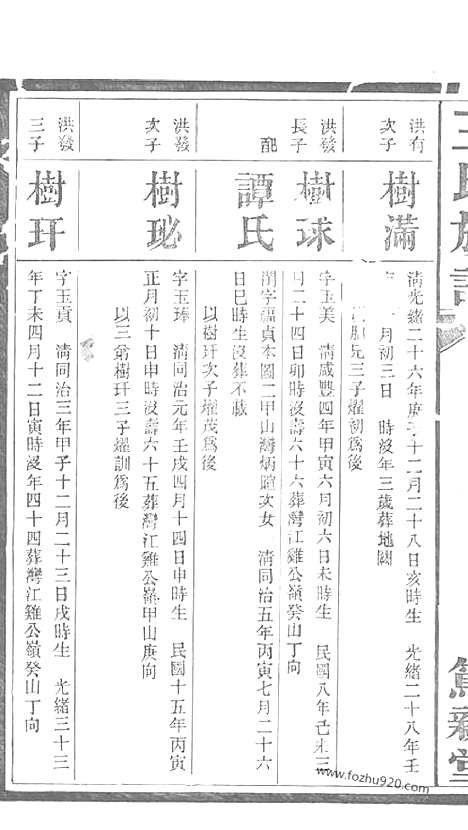 王氏族譜
洪有
次子
樹滿
清光緒二十六年庚子十二月二十八日亥時生 光緒二十八年壬
月初三日 時沒年三歲葬地闕
三子燿初爲後
洪發
長子
樹球
字玉美 清咸豐四年甲寅六月初六日未時生 民國八年己未三
月二十四日卯時沒壽六十六葬灣江雞公嶺癸山丁向
配
譚氏
閨字福貞本圖二甲山灣炳暄次女 清同治五年丙寅七月二十六
日巳時生沒葬不載
以樹玕次子燿茂爲後
洪發
次子
樹珌
字玉琫 清同治元年壬戌四月十四日申時生 民國十五年丙寅
正月初十日申時沒壽六十五葬灣江雞公嶺甲山庚向
以三弟樹玕三子燿訓爲後
洪發
三子
樹玕
字玉貢 清同治三年甲子十二月二十三日戌時生 光緒三十三
年丁未四月十二日寅時沒年四十四葬灣江雞公嶺癸山丁向
新堂
www.fozhu920.com